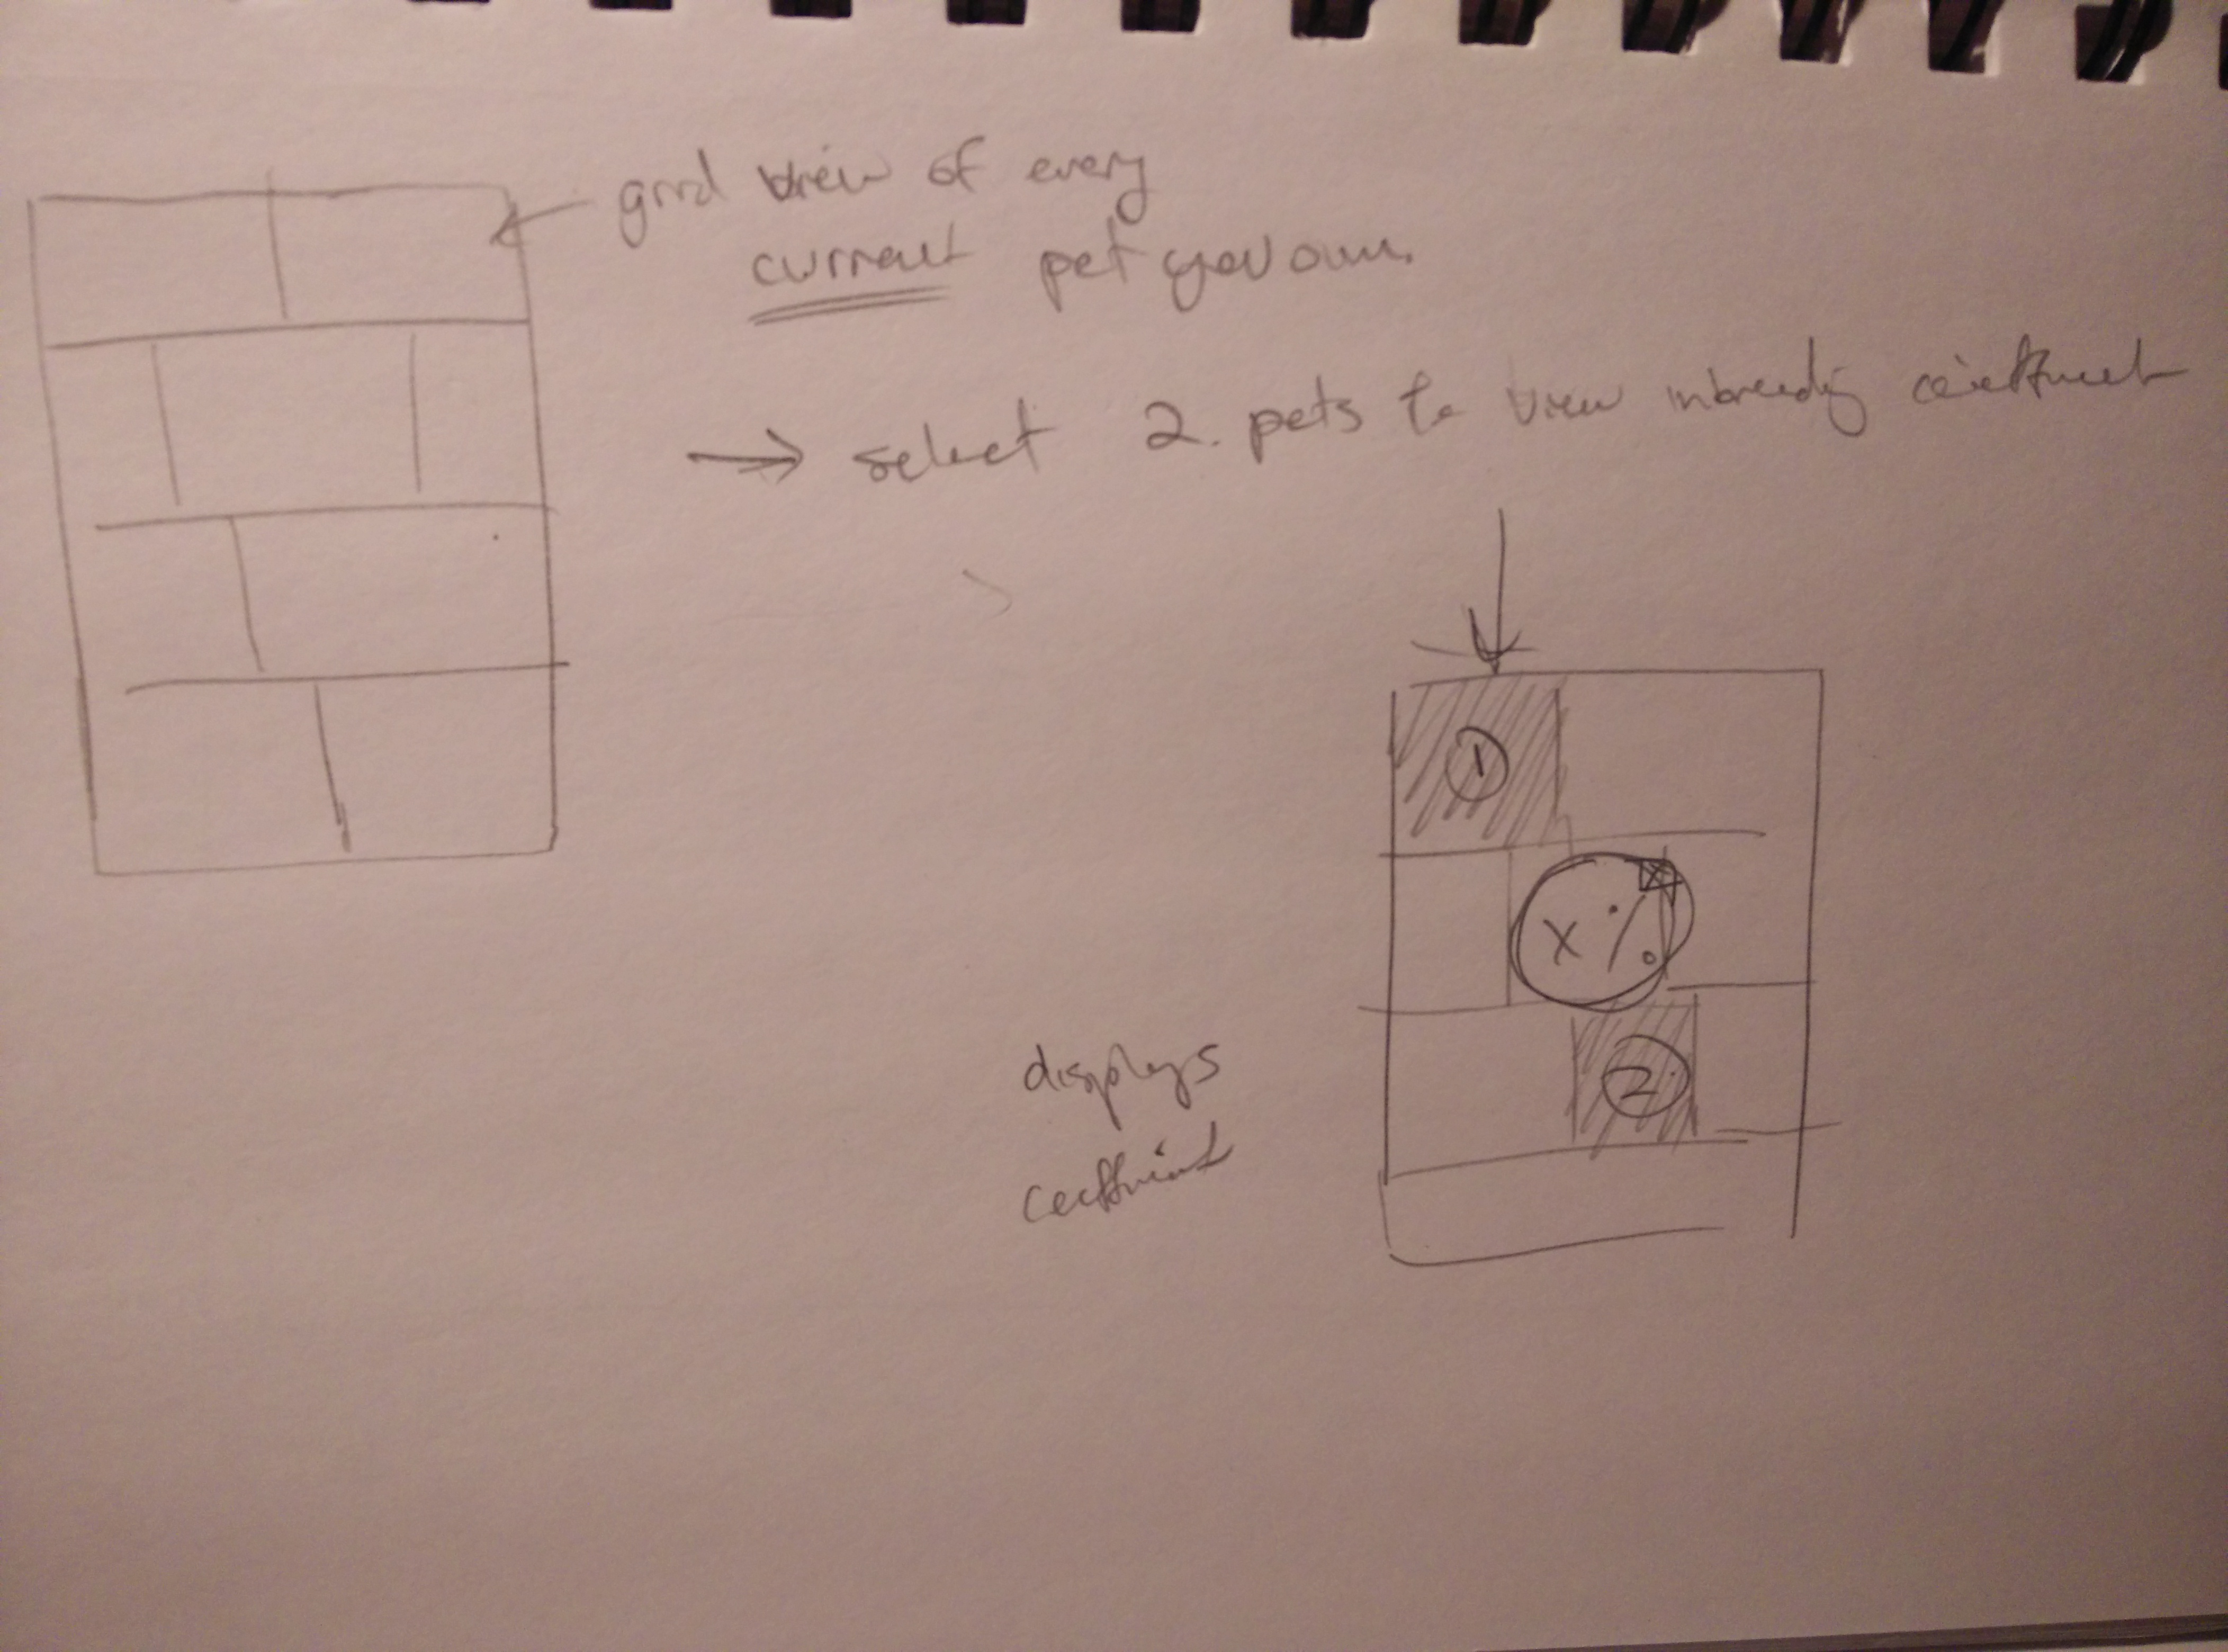 grid view of every
current pet you own.
→ select 2 pets to view inbreeding coefficient
1
x %
2
displays
coefficient